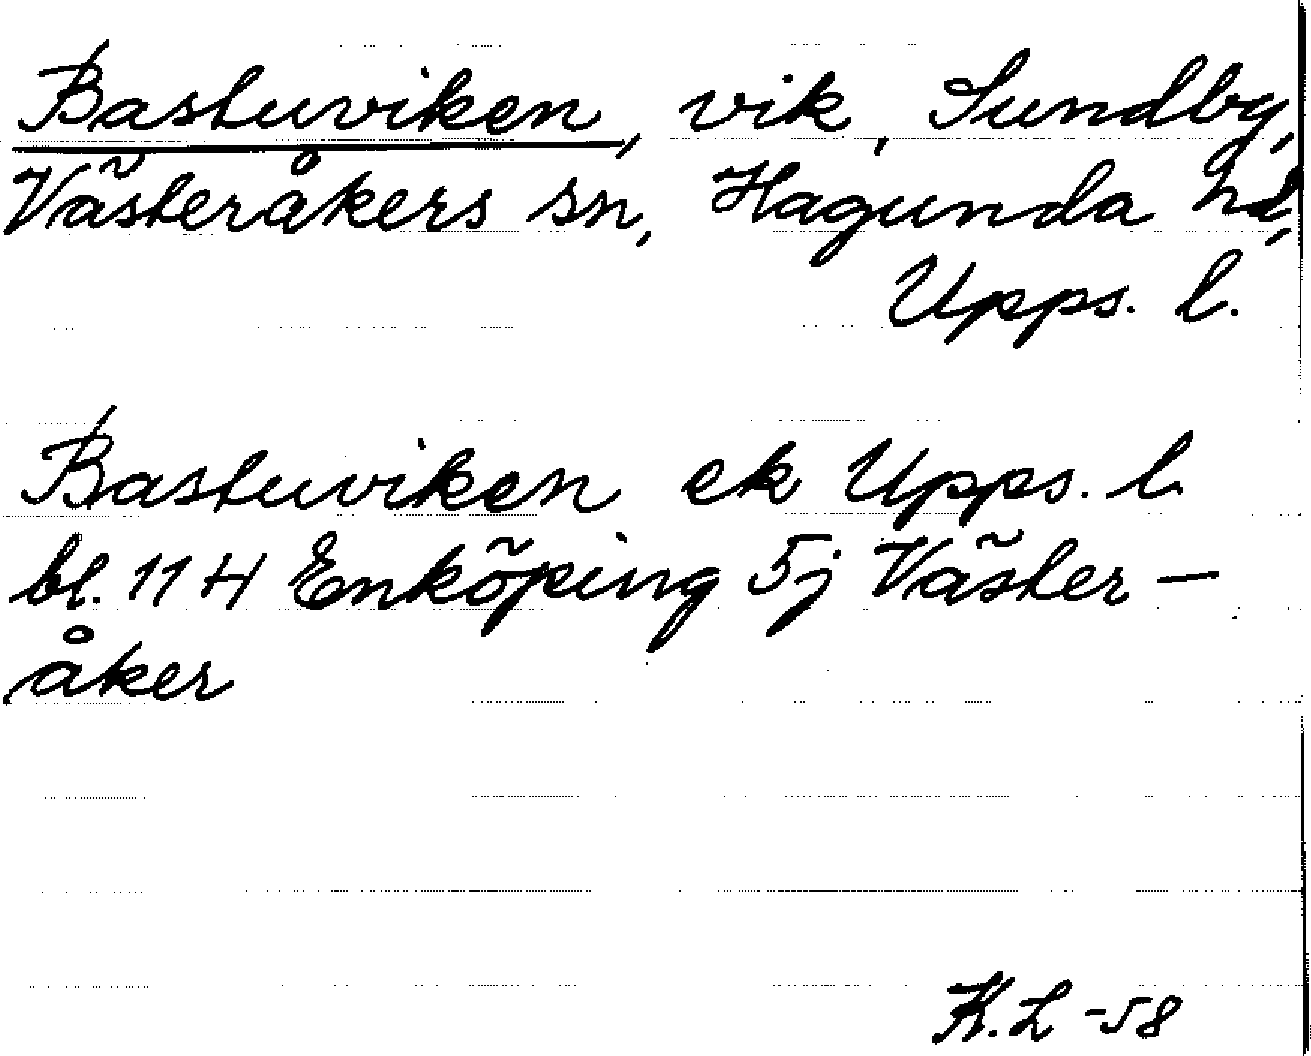 Bastuviken, vik, Sundby,
Västeråkers sn, Hagunda hd,
Upps. l.
Bastuviken ek Upps. l
bl. 11 H Enköping 5j Väster-
åker
K.L -58